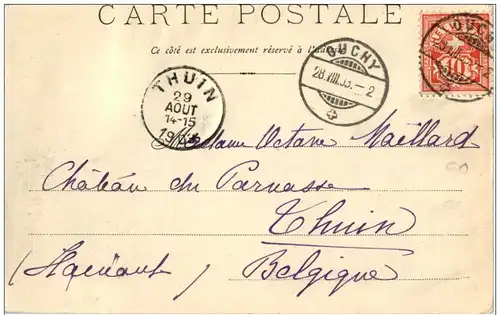 CARTE POSTALE
Ce côté est exclusivement réservé à l'adresse.
OUCHY
28.VIII.03.–2
THUIN
29
AOUT
14-15
19
10
Madame Octave Maillard
Château du Parnasse
Thuin
(Hainaut)
Belgique